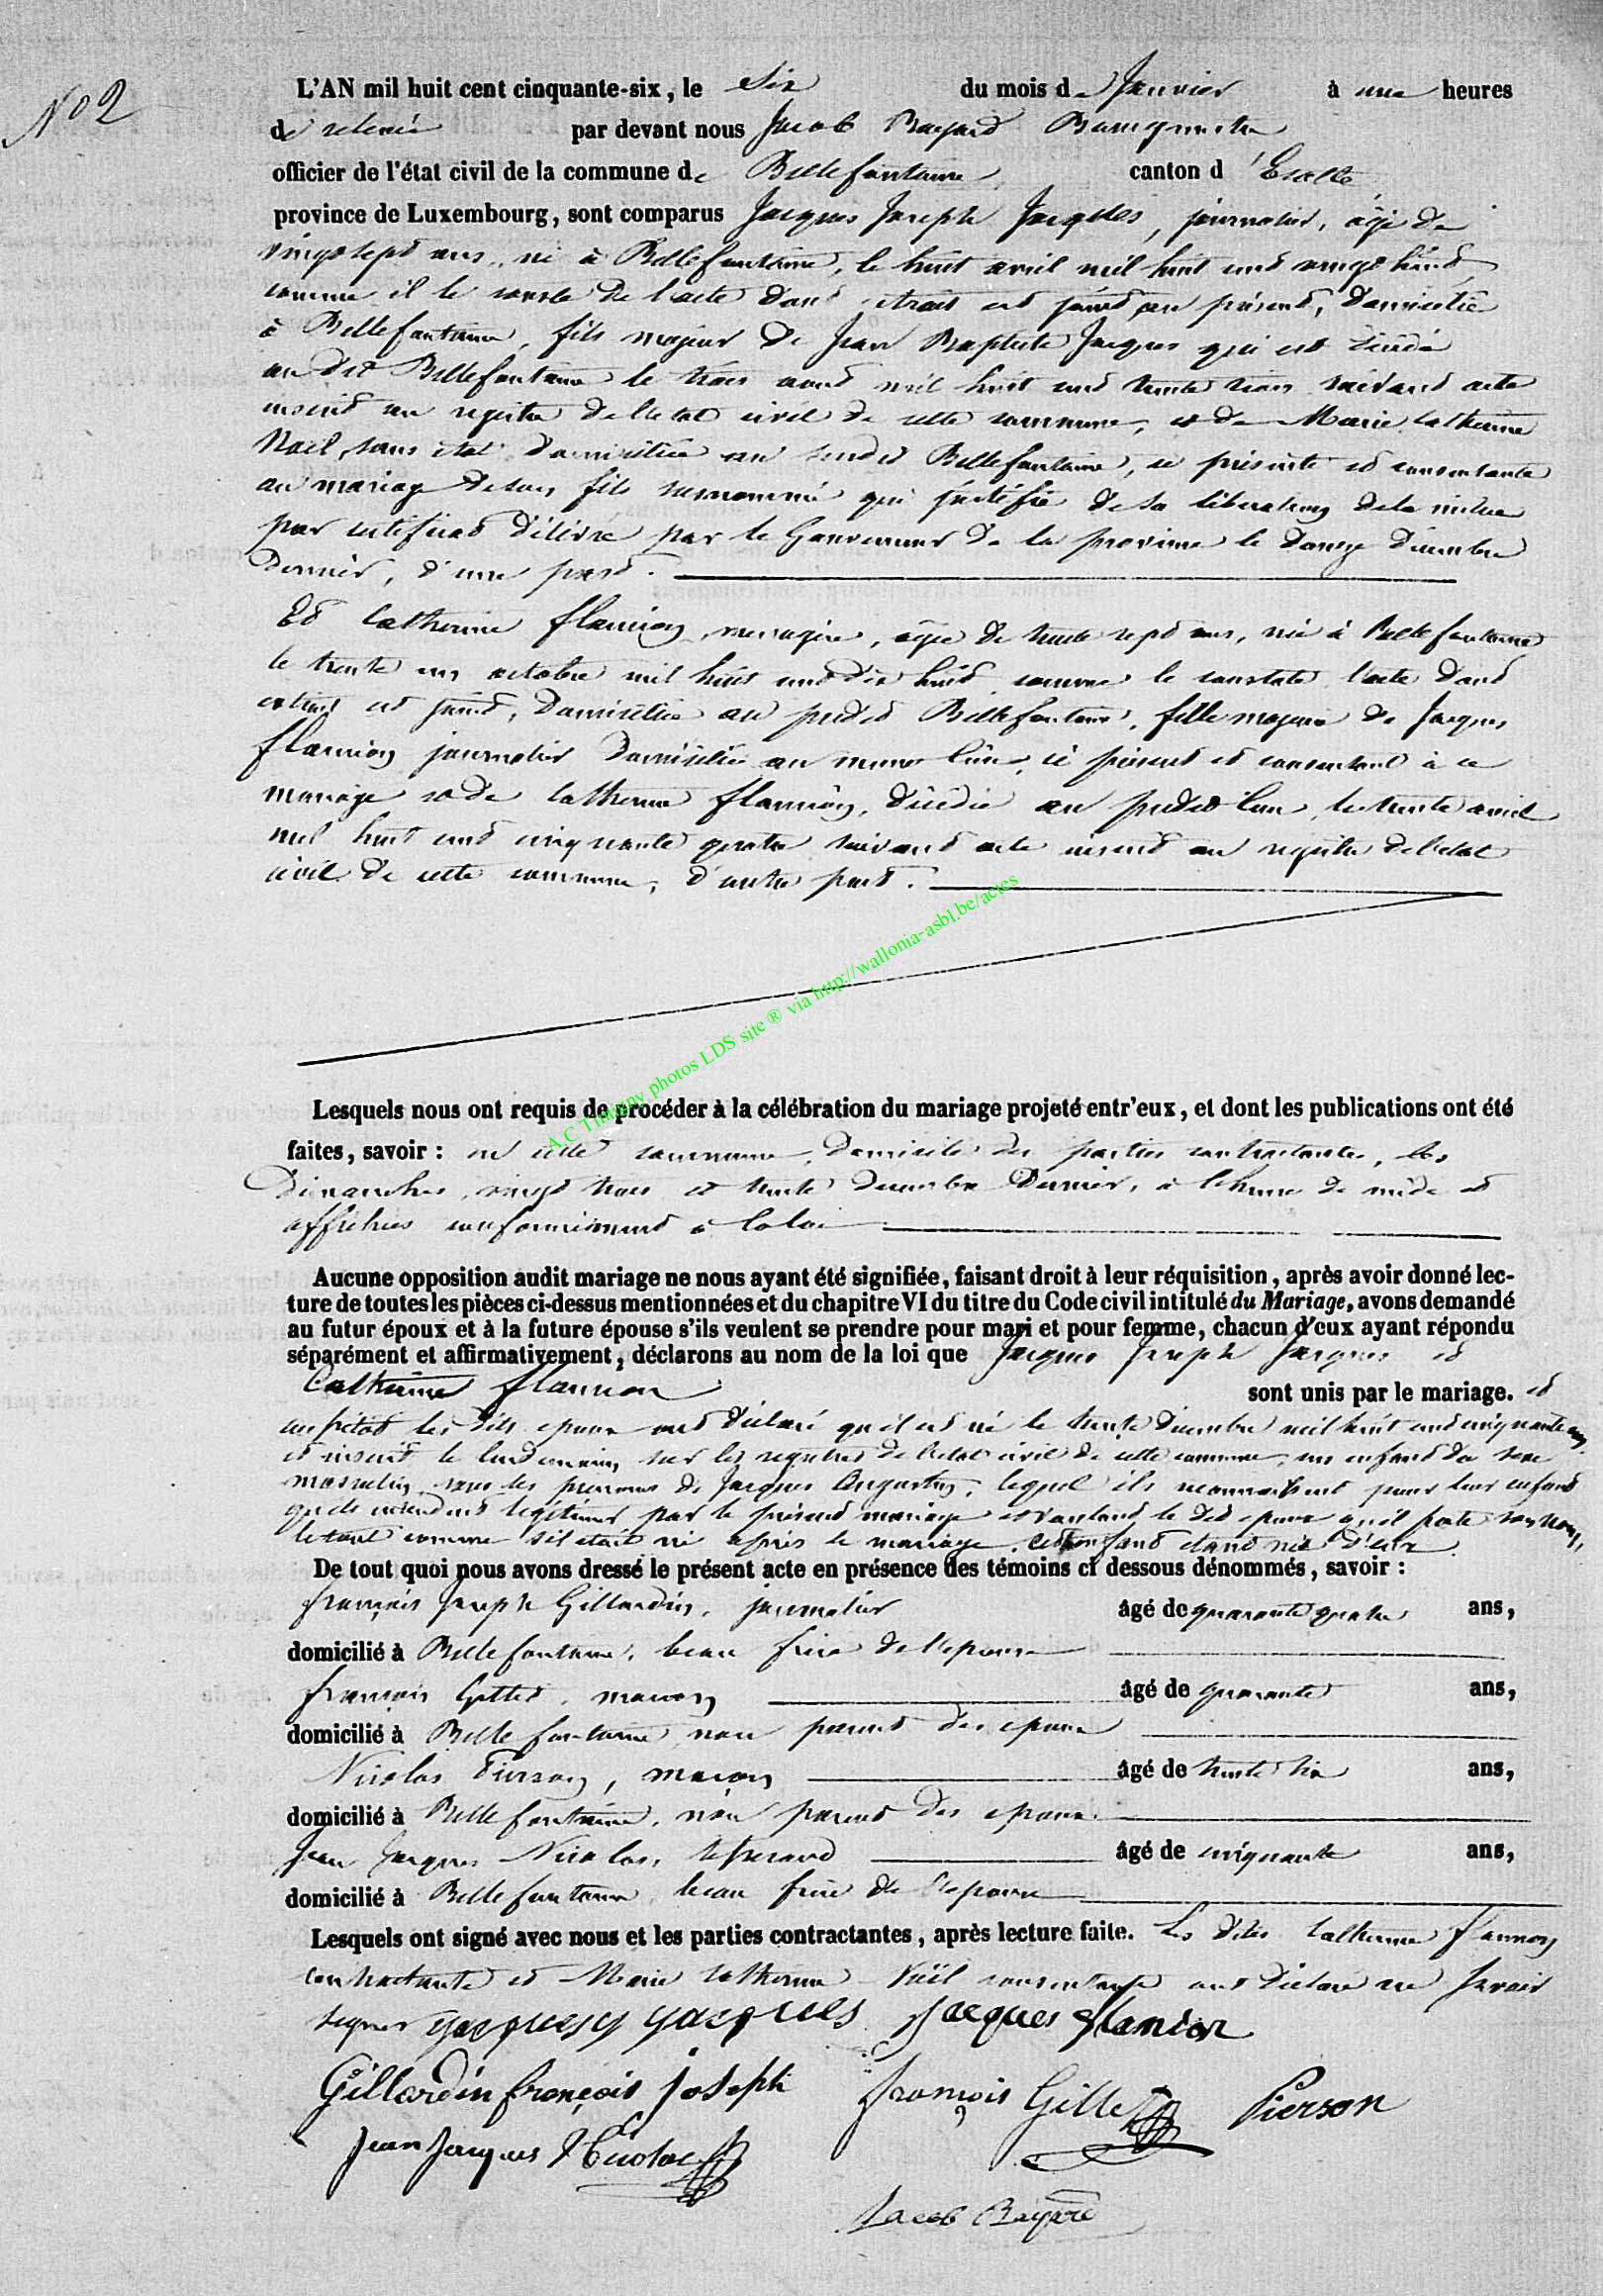 No 2
L'AN mil huit cent cinquante-six, le Six du mois de Janvier à une heures
de relevée par devant nous Jacob Bayard Bourgmestre
officier de l'état civil de la commune de Bellefontaine canton d'Etalle
province de Luxembourg, sont comparus Jacques Joseph Jacques, journalier, âgé de
vingt sept ans, né à Bellefontaine, le huit avril mil huit cent vingt huit
comme il le conste de l'acte dont extrait est joint au présent, domicilié
à Bellefontaine, fils majeur de Jean Baptiste Jacques qui est décédé
au dit Bellefontaine le trois août mil huit cent trente trois suivant acte
inscrit au registre de l'état civil de cette commune, et de Marie Catherine
Noël, sans état domiciliée au susdit Bellefontaine, ci présente et consentante
au mariage de son fils surnommé qui justifie de sa libération de la milice
par certificat délivré par le Gouverneur de la province le douze décembre
dernier, d'une part.
Et Catherine flamion, menagère, âgée de trente sept ans, née à Bellefontaine
le trente un octobre mil huit cent dix huit comme le constate l'acte dont
extrait est joint, domiciliée au predit Bellefontaine, fille majeure de Jacques
flamion journalier domicilié au meme lieu, ci présent et consentant à ce
mariage et de Catherine flamion, décédée au predit lieu, le trente avril
mil huit cent cinquante quatre suivant acte inscrit au registre de l'etat
civil de cette commune, d'autre part.
A.C Tintigny photos LDS site ® via http://wallonia-asbl.be/actes
Lesquels nous ont requis de procéder à la célébration du mariage projeté entr'eux, et dont les publications ont été
faites, savoir : en cette commune, domicile des parties contractantes, les
Dimanches, vingt trois et trente decembre dernier, à l'heure de midi et
affichées conformément à la loi
Aucune opposition audit mariage ne nous ayant été signifiée, faisant droit à leur réquisition, après avoir donné lec-
ture de toutes les pièces ci-dessus mentionnées et du chapitre VI du titre du Code civil intitulé du Mariage, avons demandé
au futur époux et à la future épouse s'ils veulent se prendre pour mari et pour femme, chacun d'eux ayant répondu
séparément et affirmativement, déclarons au nom de la loi que Jacques Joseph Jacques et
Catherine flamion sont unis par le mariage. et
aussitôt les dits epoux ont déclaré qu'il est né le trente décembre mil huit cent cinquante
et inscrit le lendemain sur les registres de l'etat civil de cette commune, un enfant du sexe
masculin sous les prenoms de Jacques Augustin, lequel ils reconnaissent pour leur enfant
qu'ils entendent légitimer par le présent mariage et voulant le dit epoux qu'il porte son nom,
le tout comme s'il etait né après le mariage, cet enfant etant né d'eux
De tout quoi nous avons dressé le présent acte en présence des témoins ci dessous dénommés, savoir :
françois Joseph Gillardin, journalier âgé de quarante quatre ans,
domicilié à Bellefontaine, beau frère de l'epouse
françois Gillet, macon âgé de quarante ans,
domicilié à Bellefontaine non parent des epoux
Nicolas Pierson, macon âgé de trente six ans,
domicilié à Bellefontaine, non parent des epoux
Jean Jacques Nicolas, tisserand âgé de cinquante ans,
domicilié à Bellefontaine beau frère de l'epouse
Lesquels ont signé avec nous et les parties contractantes, après lecture faite. Les dites Catherine flamion
contractante et Marie Catherine Noël consentante ont déclaré ne savoir
signer Jacques J Jacques Jacques flamion
Gillardin françois joseph françois Gillet Pierson
Jean Jacques Nicolas
Jacob Bayard